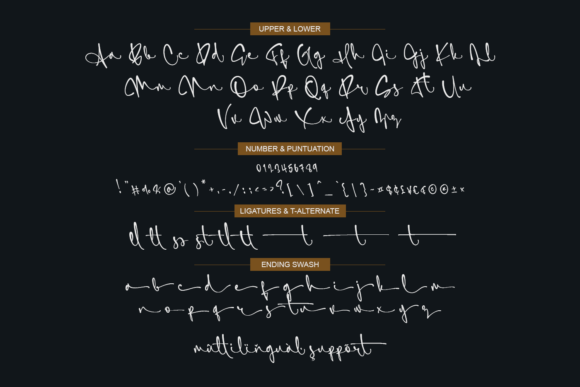 UPPER & LOWER
Aa Bb Cc Dd Ee Ff Gg Hh Ii Jj Kk Ll
Mm Nn Oo Pp Qq Rr Ss Tt Uu
Vv Ww Xx Yy Zz
NUMBER & PUNTUATION
0123456789
LIGATURES & T-ALTERNATE
tl tt ss st tl tt t t t
ENDING SWASH
a b c d e f g h i j k l m
n o p q r s t u v w x y z
multilingual support